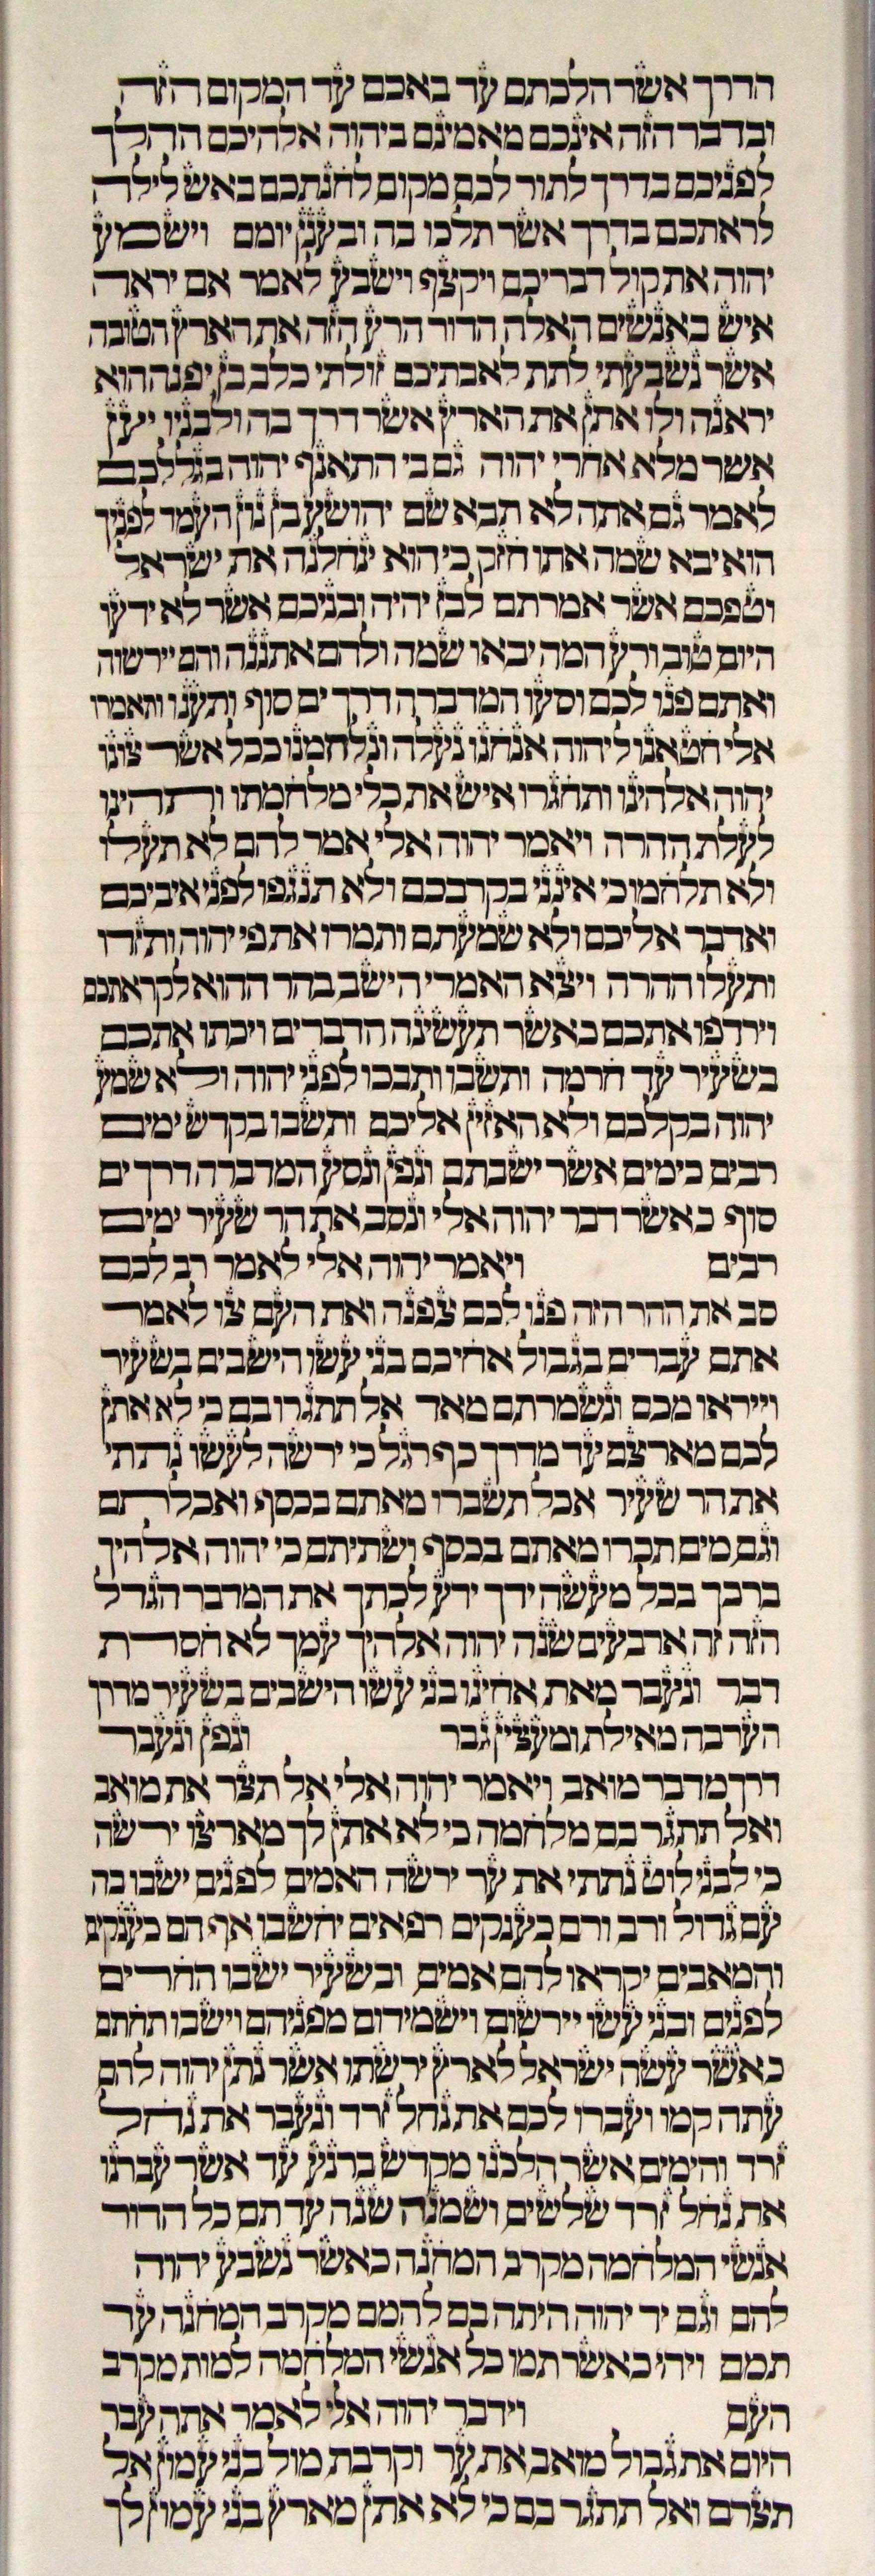 הדרך אשר הלכתם עד באכם עד המקום הזה
ובדבר הזה אינכם מאמינם ביהוה אלהיכם ההלך
לפניכם בדרך לתור לכם מקום לחנתכם באש לילה
לראתכם בדרך אשר תלכו בה ובענן יומם וישמע
יהוה את קול דבריכם ויקצף וישבע לאמר אם יראה
איש באנשים האלה הדור הרע הזה את הארץ הטובה
אשר נשבעתי לתת לאבתיכם זולתי כלב בן יפנה הוא
יראנה ולו אתן את הארץ אשר דרך בה ולבניו יען
אשר מלא אחרי יהוה גם בי התאנף יהוה בגללכם
לאמר גם אתה לא תבא שם יהושע בן נון העמד לפניך
הוא יבא שמה אתו חזק כי הוא ינחלנה את ישראל
וטפכם אשר אמרתם לבז יהיה ובניכם אשר לא ידעו
היום טוב ורע המה יבאו שמה ולהם אתננה והם יירשוה
ואתם פנו לכם וסעו המדברה דרך ים סוף ותענו ותאמרו
אלי חטאנו ליהוה אנחנו נעלה ונלחמנו ככל אשר צונו
יהוה אלהינו ותחגרו איש את כלי מלחמתו ותהינו
לעלת ההרה ויאמר יהוה אלי אמר להם לא תעלו
ולא תלחמו כי אינני בקרבכם ולא תנגפו לפני איביכם
ואדבר אליכם ולא שמעתם ותמרו את פי יהוה ותזדו
ותעלו ההרה ויצא האמרי הישב בהר ההוא לקראתכם
וירדפו אתכם כאשר תעשינה הדברים ויכתו אתכם
בשעיר עד חרמה ותשבו ותבכו לפני יהוה ולא שמע
יהוה בקלכם ולא האזין אליכם ותשבו בקדש ימים
רבים כימים אשר ישבתם ונפן ונסע המדברה דרך ים
סוף כאשר דבר יהוה אלי ונסב את הר שעיר ימים
רבים ויאמר יהוה אלי לאמר רב לכם
סב את ההר הזה פנו לכם צפנה ואת העם צו לאמר
אתם עברים בגבול אחיכם בני עשו הישבים בשעיר
וייראו מכם ונשמרתם מאד אל תתגרו בם כי לא אתן
לכם מארצם עד מדרך כף רגל כי ירשה לעשו נתתי
את הר שעיר אכל תשברו מאתם בכסף ואכלתם
וגם מים תכרו מאתם בכסף ושתיתם כי יהוה אלהיך
ברכך בכל מעשה ידך ידע לכתך את המדבר הגדל
הזה זה ארבעים שנה יהוה אלהיך עמך לא חסרת
דבר ונעבר מאת אחינו בני עשו הישבים בשעיר מדרך
הערבה מאילת ומעצין גבר ונפן ונעבר
דרך מדבר מואב ויאמר יהוה אלי אל תצר את מואב
ואל תתגר בם מלחמה כי לא אתן לך מארצו ירשה
כי לבני לוט נתתי את ער ירשה האמים לפנים ישבו בה
עם גדול ורב ורם כענקים רפאים יחשבו אף הם כענקים
והמאבים יקראו להם אמים ובשעיר ישבו החרים
לפנים ובני עשו יירשום וישמידום מפניהם וישבו תחתם
כאשר עשה ישראל לארץ ירשתו אשר נתן יהוה להם
עתה קמו ועברו לכם את נחל זרד ונעבר את נחל
זרד והימים אשר הלכנו מקדש ברנע עד אשר עברנו
את נחל זרד שלשים ושמנה שנה עד תם כל הדור
אנשי המלחמה מקרב המחנה כאשר נשבע יהוה
להם וגם יד יהוה היתה בם להמם מקרב המחנה עד
תמם ויהי כאשר תמו כל אנשי המלחמה למות מקרב
העם וידבר יהוה אלי לאמר אתה עבר
היום את גבול מואב את ער וקרבת מול בני עמון אל
תצרם ואל תתגר בם כי לא אתן מארץ בני עמון לך